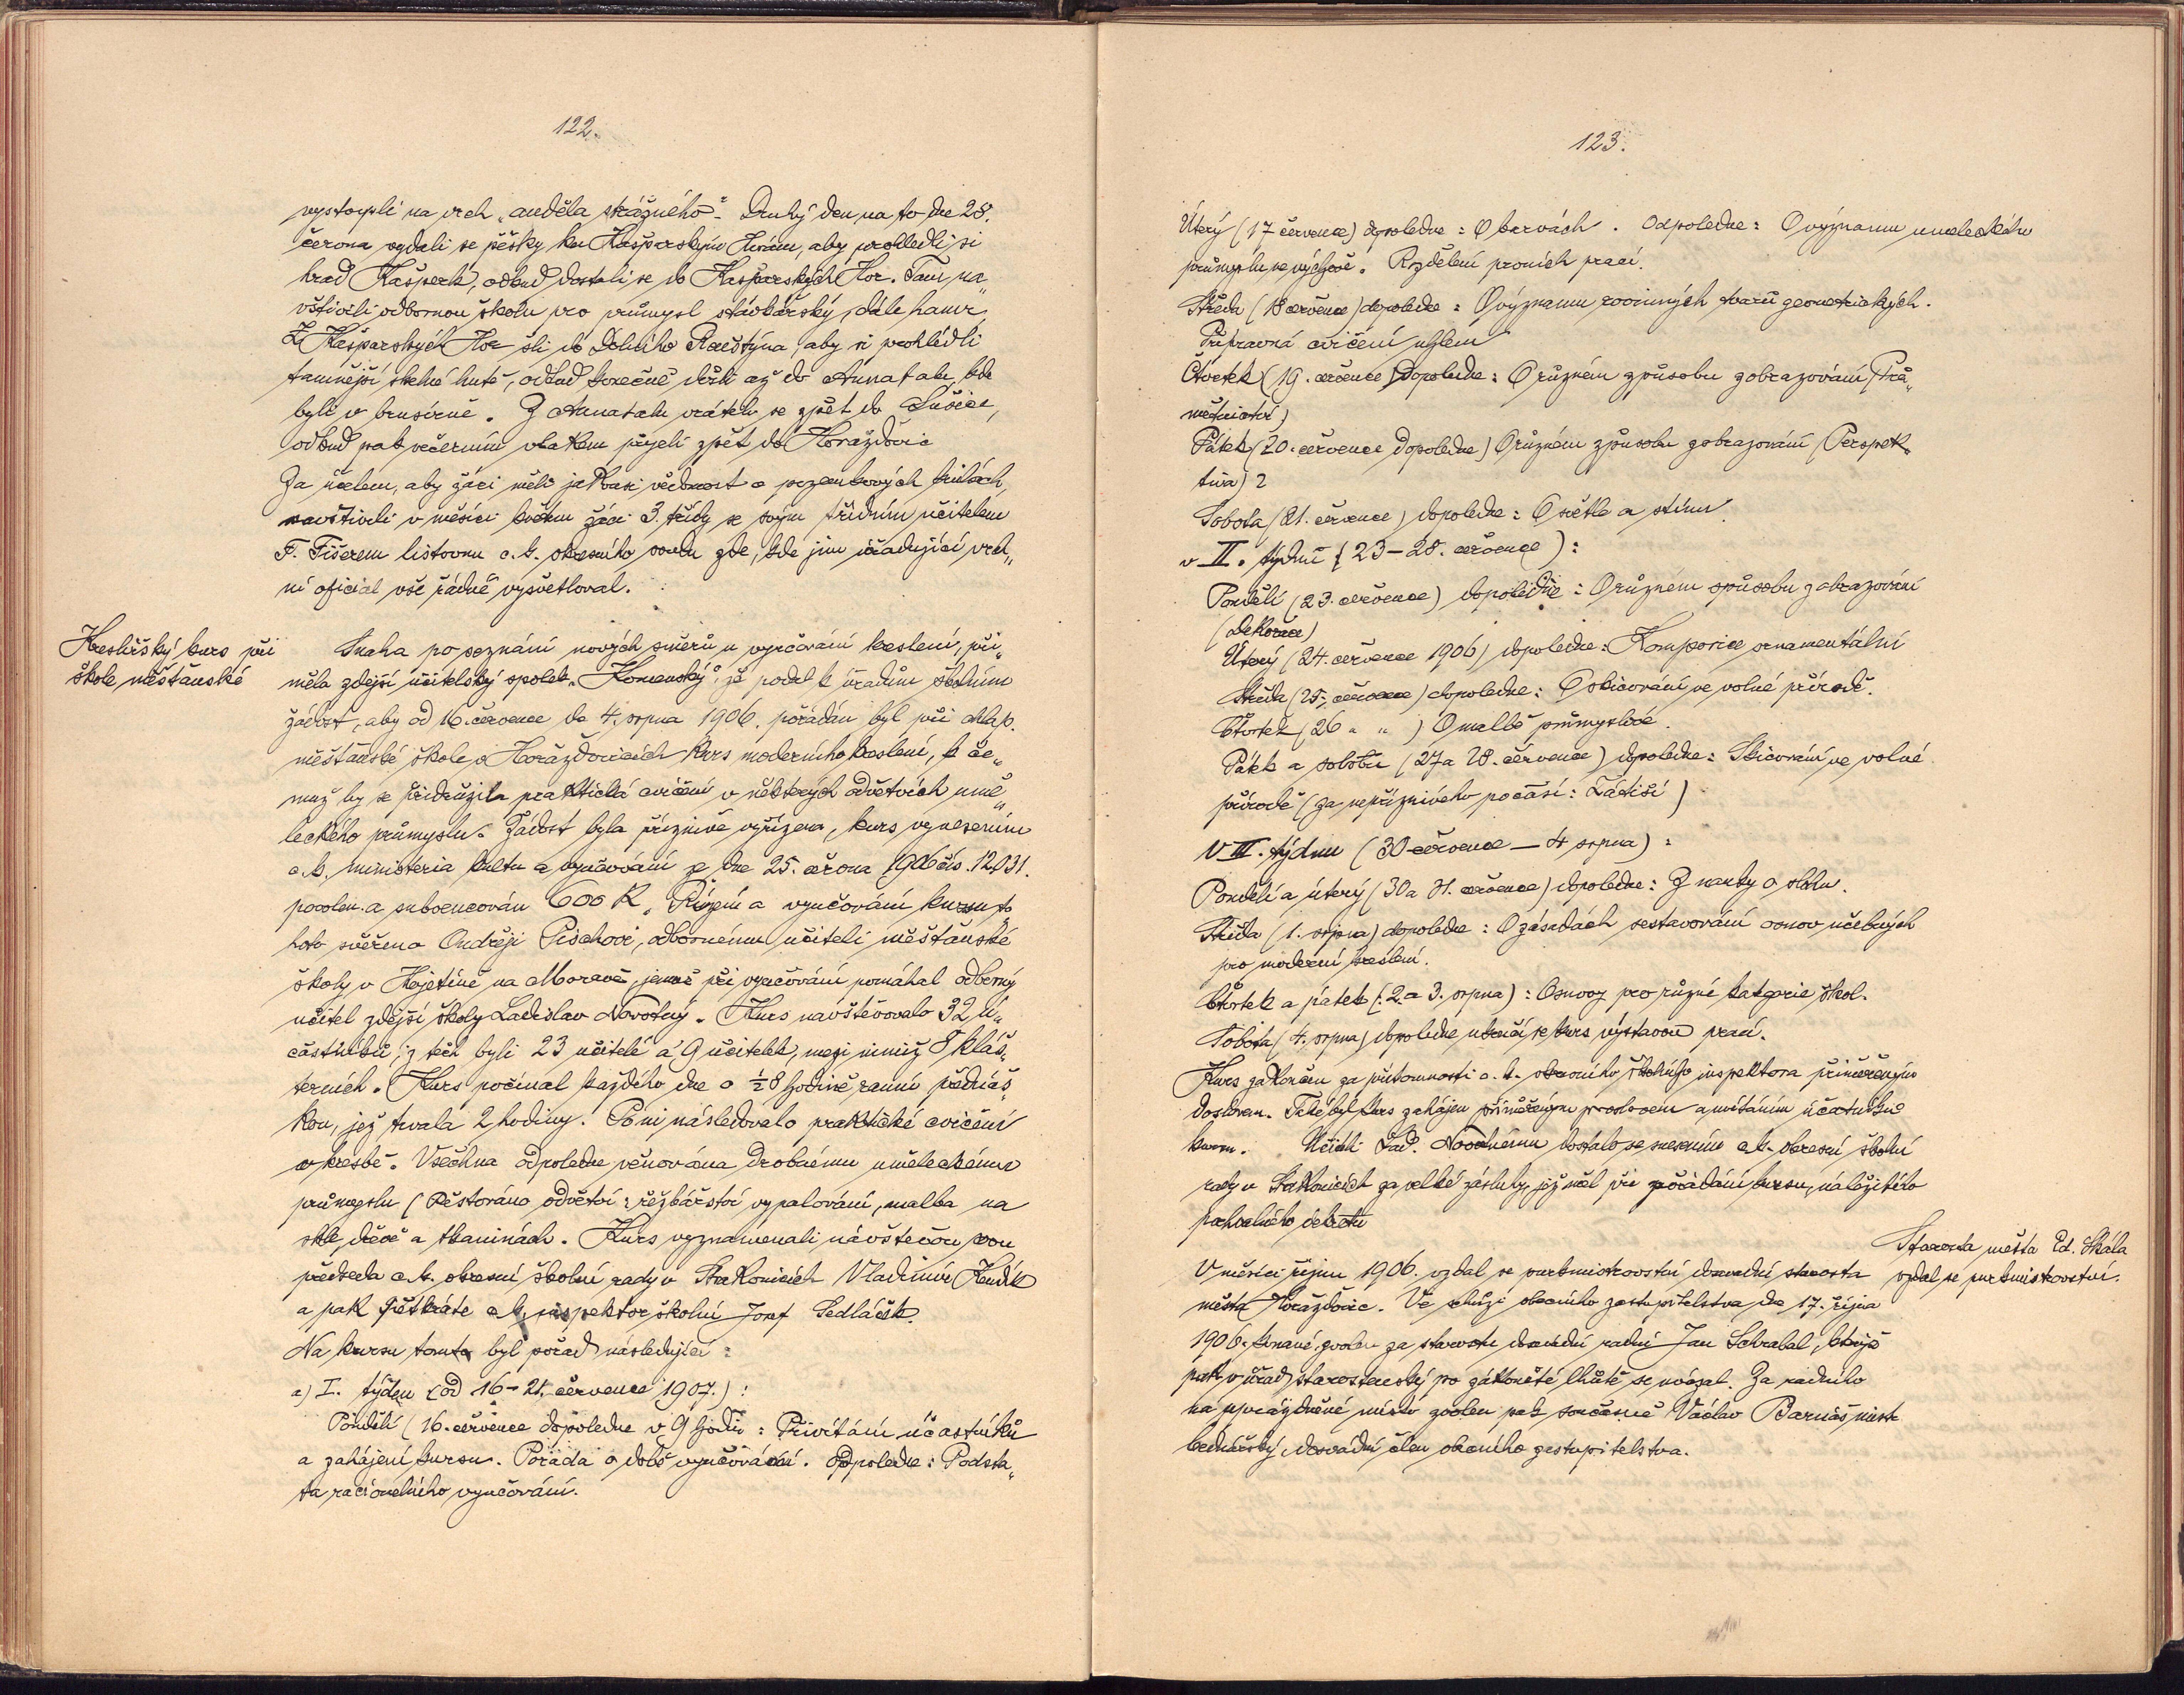 122.
vystoupli na vrch „anděla strážného“. Druhý den na to dne 28.
června vydali se pěšky ku Kašperským Horám, aby prohledli si
hrad Kašperk, odtud dostali se do Kašperských Hor. Tam na„
vštívili odbornou školu pro průmysl stávkářský, dále hamr.
Z Kašperských Hor šli do Dolního Rochstýna, aby si prohlédli
tamnější skelné hutě, odtud konečně došli až do Annatalu, kde
byli v brusírně. Z Annatalu vrátili se zpět do Sušice,
odtud pak večerním vlakem přijeli zpět do Horažďovic
Za účelem, aby žáci měli jakousi vědomost o pozemkových knihách,
navštívili v měsíci květnu žáci 3. třídy se svým třídním učitelem
F. Fišerem listovnu c. k. okresního soudu zde, kde jim úřadující vrch„
ní oficiál vše řádně vysvětloval.
Kreslířský kurs při
škole měšťanské
Snaha po poznání nových směrů u vyučování kreslení, při„
měla zdejší učitelský spolek „Komenský“, že podal k úřadům školním
žádost, aby od 16. července do 4. srpna 1906. pořádán byl při chlap.
měšťanské škole v Horažďovicích kurs moderního kreslení, k če„
muž by se přidružila praktická cvičení v některých odvětvích umě„
leckého průmyslu. Žádost byla příznivě vyřízena, kurs vynesením
c. k. ministeria kultu a vyučování ze dne 25. června 1906 čís. 12031.
povolen a subvencován 600 K. Řízení a vyučování kursu to„
hoto svěřeno Ondřeji Pischovi, odbornému učiteli měšťanské
školy v Kojetíně na Moravě, jemuž při vyučování pomáhal odborný
učitel zdejší školy Ladislav Novotný. Kurs navštěvovalo 32 ú„
častníků, z těch byli 23 učitelé a 9 učitelek, mezi nimiž 8 kláš„
terních. Kurs počínal každého dne o ½8 hodině ranní předná𠄍
kou, jež trvala 2 hodiny. Po ní následovalo praktické cvičení
v kresbě. Všechna odpoledne věnována drobnému uměleckému
průmyslu (Pěstována odvětví: řezbářství vypalování, malba na
skle, dřevě a tkaninách. Kurs vyznamenali návštěvou svou
předseda c. k. okresní školní rady v Strakonicích Vladimír Hendl
a pak pětkráte c. k. inspektor školní Josef Sedláček.
Na kursu tomto byl pořad následující:
a) I. týden (od 16–21. července 1907.):
Pondělí (16. července dopoledne v 9 hodin: Přivítání účastníků
a zahájení kursu. Porada o době vyučování. Odpoledne: Podsta„
ta racionelního vyučování.
123.
Úterý (17 července) dopoledne: O barvách. Odpoledne: O významu uměleckého
průmyslu ve výchově. Rozdělení prvních prací.
Středa (18 července) dopoledne: O významu rovinných tvarů geometrických.
Přípravná cvičení uhlem
Čtvrtek (19. července) Dopoledne: O různém způsobu zobrazování (Prů„
mětnictví)
Pátek (20. července dopoledne) O různém způsobu zobrazování (Perspek„
tiva)
Sobota (21. července) dopoledne: O světle a stínu
v II. týdnu (23–28. července):
Pondělí (23. července) dopoledne: O různém způsobu zobrazování
(Dekorace)
Úterý (24. července 1906) dopoledne: Komposice ornamentální
Středa (25. července) dopoledne: O skicování ve volné přírodě.
Čtvrtek (26 „ „ ) O malbě průmyslové.
Pátek a sobotu (27 a 28. července) dopoledne: Skicování ve volné
přírodě (za nepříznivého počasí: Zátiší)
V III. týdnu (30 července – 4 srpna):
Pondělí a úterý (30 a 31. července) dopoledne: Z nauky o slohu.
Středa (1. srpna) dopoledne: O zásadách sestavování osnov učebných
pro moderní kreslení.
Čtvrtek a pátek (2. a 3. srpna): Osnovy pro různé kategorie škol.
Sobota (4. srpna) dopoledne ukončí se kurs výstavou prací.
Kurs zakončen za přítomnosti c. k. okresního školního inspektora přiměřeným
doslovem. Také byl kurs zahájen přiměřeným proslovem a uvítáním účastníků
kursu. Učiteli Lad. Novotnému dostalo se vynesením c. k. okresní školní
rady v Strakonicích za velké zásluhy, jež měl při pořádání kursu, náležitého
pochvalného dekretu
Starosta města Ed. Škála
vzdal se purkmistrovství.
V měsíci říjnu 1906. vzdal se purkmistrovství dosavadní starosta
města Horažďovic. Ve schůzi obecního zastupitelstva dne 17. října
1906. konané zvolen za starostu dosavadní radní Jan Schrabal, kterýž
pak v úřad starostenský po zákonité lhůtě se uvázal. Za radního
na uprázdněné místo zvolen pak současně Václav Barnáš mistr
bednářský dosavadní člen obecního zastupitelstva.